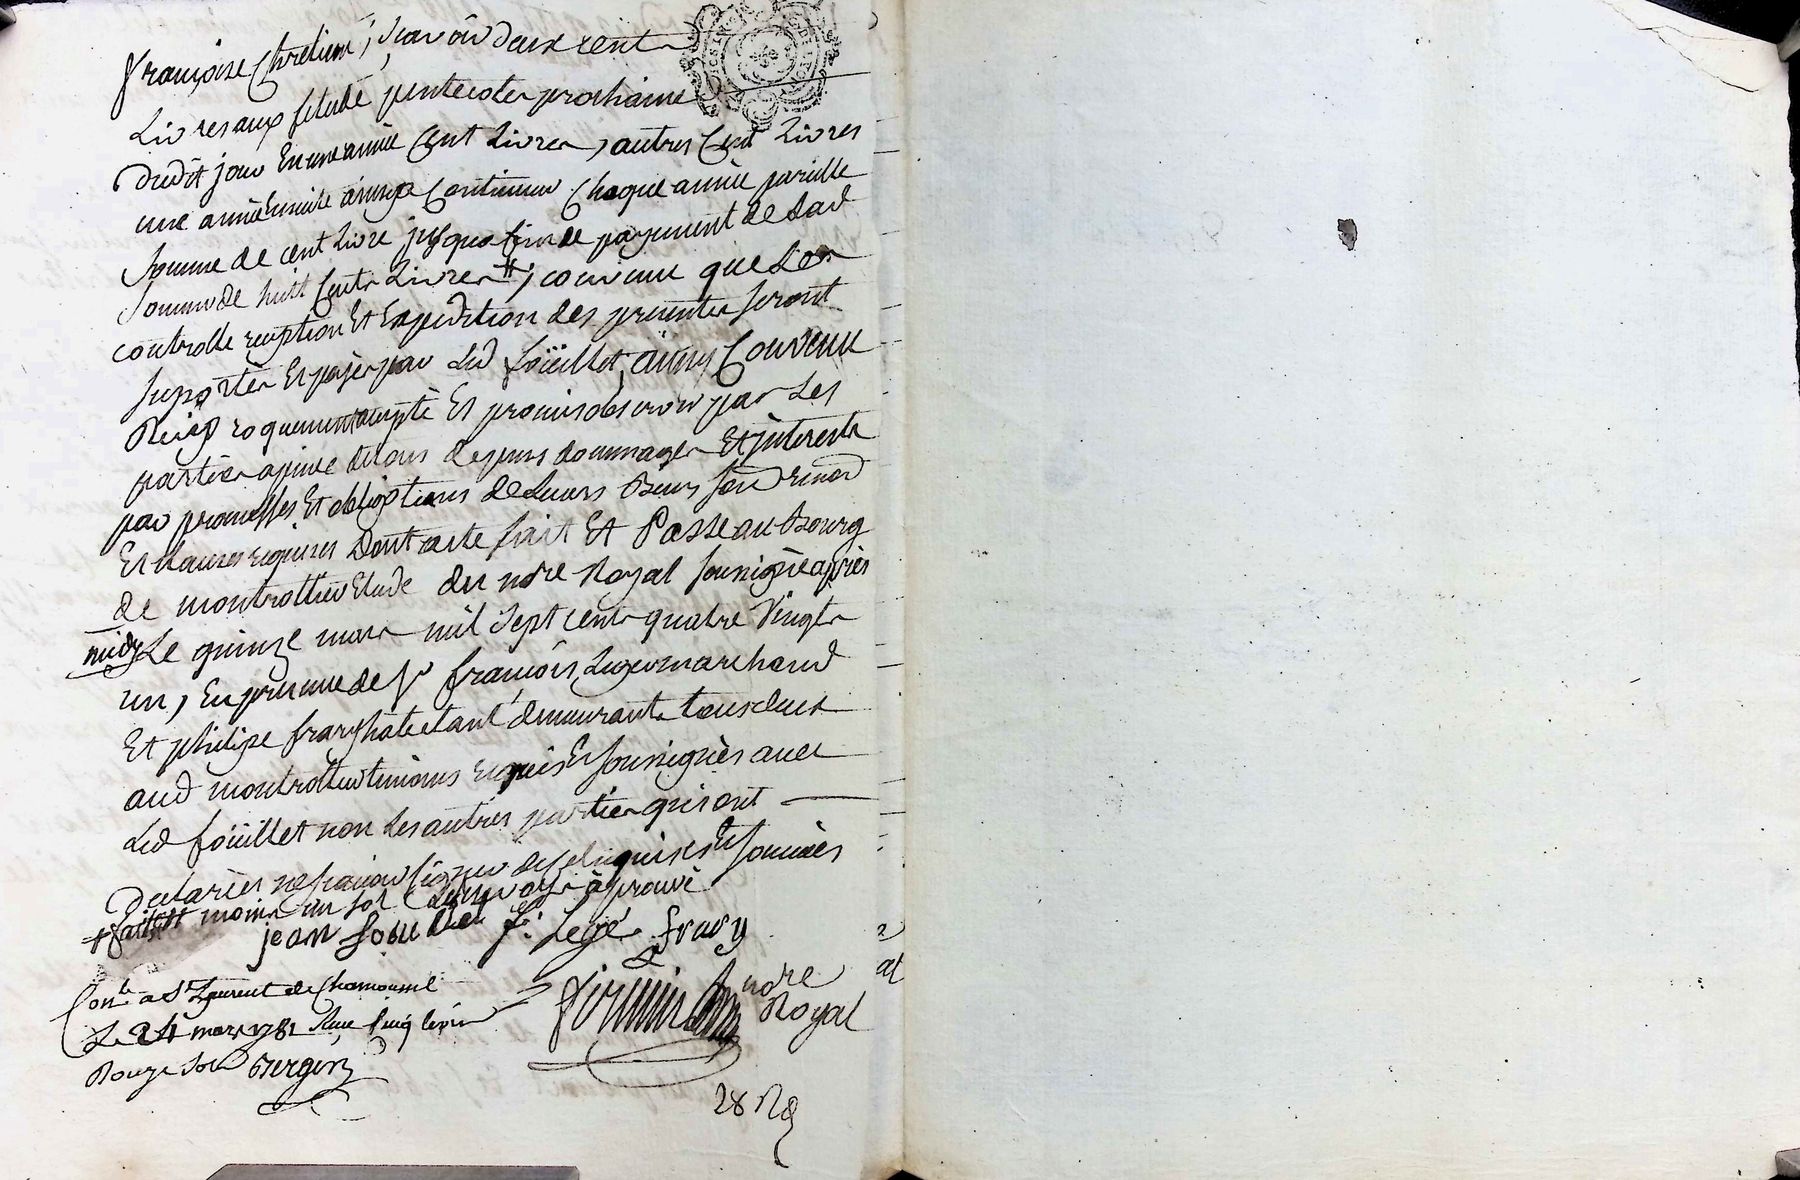 françoise Chretienne, scavoir deux cents
Livres aux fetes de pentecote prochaine
dudit jour En une année Cent Livres, autres Cent Livres
une année ensuite ainsy continuer Chaque année pareille
somme de cent Livre jusqua fin de payement de lad
somme de huit Cents Livres #, convenu que Les
controlle reception Et Expedition des presentes seront
suportés Et payés par Led foüillet, ainsy Convenu
Reciproquement accepté Et promis observer par Les
parties a peine de tous depens dommages Et jnterests
par promesses Et obligations de Leurs Biens
Et clauses requises Dont acte fait Et Passé au Bourg
de montrottier Etude du nore Royal soussigné après
midy Le quinze mars mil sept cents quatre vingts
un, En presence de sr françois Legé marchand
Et philipe frary demeurants tous deux
aud montrottier temoins requis Et soussignés avec
Led foüillet non Les autres parties qui ont
declarés ne scavoir signer de ce Enquises Et sommées
moins un sol aprouvé
jean fouillet f. Legé frary
nore
Royal
Conlé a St Laurent de Chamousset
Le 24 mars 1781 Reçu
sols Berger
28 R